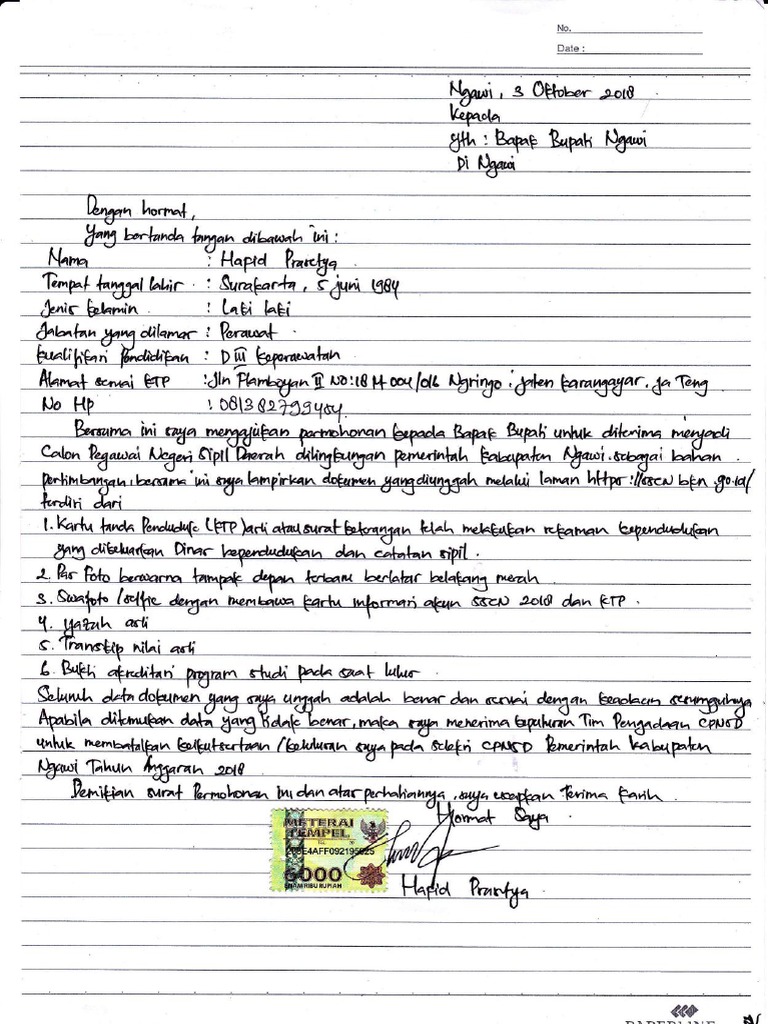 No.
Date :
Ngawi, 3 Oktober 2018
Kepada
yth : Bapak Bupati Ngawi
Di Ngawi
Dengan hormat,
Yang bertanda tangan dibawah ini :
Nama : Hafid Prasetya
Tempat tanggal lahir : Surakarta, 5 juni 1984
Jenis kelamin : Laki laki
Jabatan yang dilamar : Perawat
kualifikasi Pendidikan : D III keperawatan
Alamat sesuai KTP : Jln Flamboyan II NO:18 M 004/016 Ngringo, jaten karangayar, ja Teng
No HP : 081382799454
Bersama ini saya mengajukan permohonan kepada Bapak Bupati untuk diterima menjadi
Calon Pegawai Negeri Sipil Daerah dilingkungan pemerintah kabupaten Ngawi. sebagai bahan
pertimbangan, bersama ini saya lampirkan dokumen yang diunggah melalui laman https://sscn bkn.go.id/
terdiri dari
1. Kartu tanda Penduduk (KTP) asli atau surat keterangan telah melakukan rekaman kependudukan
yang dikeluarkan Dinas kependudukan dan catatan sipil.
2. Pas Foto berwarna tampak depan terbaru berlatar belakang merah
3. Swafoto /selfie dengan membawa kartu informasi akun SSCN 2018 dan KTP.
4. yazah asli
5. Transkip nilai asli
6. Bukti akreditasi program studi pada saat lulus
Seluruh data dokumen yang saya unggah adalah benar dan sesuai dengan keadaan sesungguhnya
Apabila ditemukan data yang tidak benar, maka saya menerima keputusan Tim Pengadaan CPNSD
untuk membatalkan keikutsertaan /kelulusan saya pada seleksi CPNSD Pemerintah kabupaten
Ngawi Tahun Anggaran 2018
Demikian surat Permohonan ini dan atas perhatiannya, saya ucapkan Terima kasih.
Hormat Saya
METERAI
TEMPEL
6000
ENAM RIBU RUPIAH
Hafid Prasetya